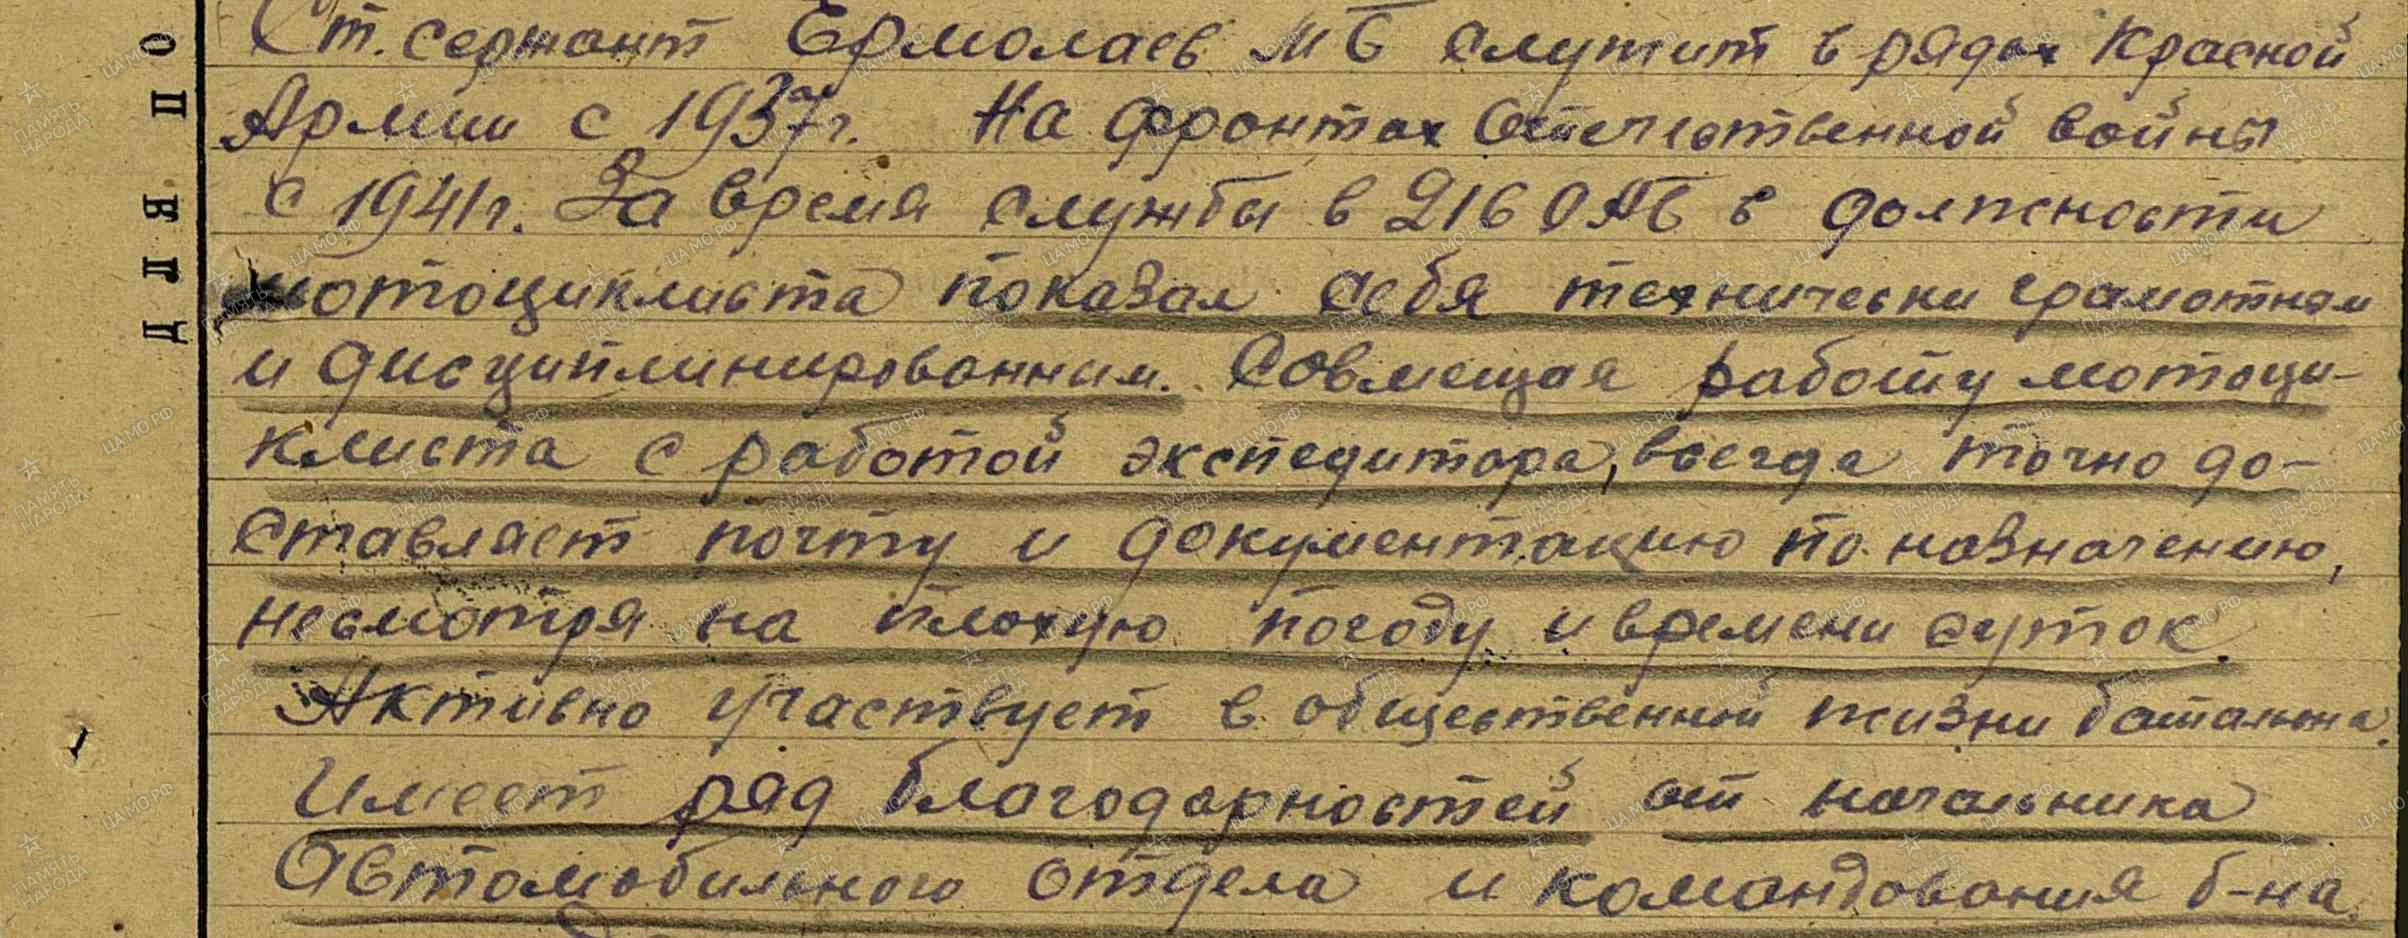 Ст. сержант Ермолаев МБ служит в рядах Красной
Армии с 1937г. На фронтах Отечественной войны
с 1941г. За время службы в 216 ОАБ в должности
мотоциклиста показал себя технически грамотным
и дисциплинированным. Совмещая работу мотоци-
клиста с работой экспедитора, всегда точно до-
ставляет почту и документацию по назначению,
несмотря на плохую погоду и времени суток.
Активно участвует в общественной жизни батальона.
Имеет ряд благодарностей от начальника
Автомобильного отдела и командования б-на.
ДЛЯ ПО
ПАМЯТЬ НАРОДА
ЦАМО.РФ